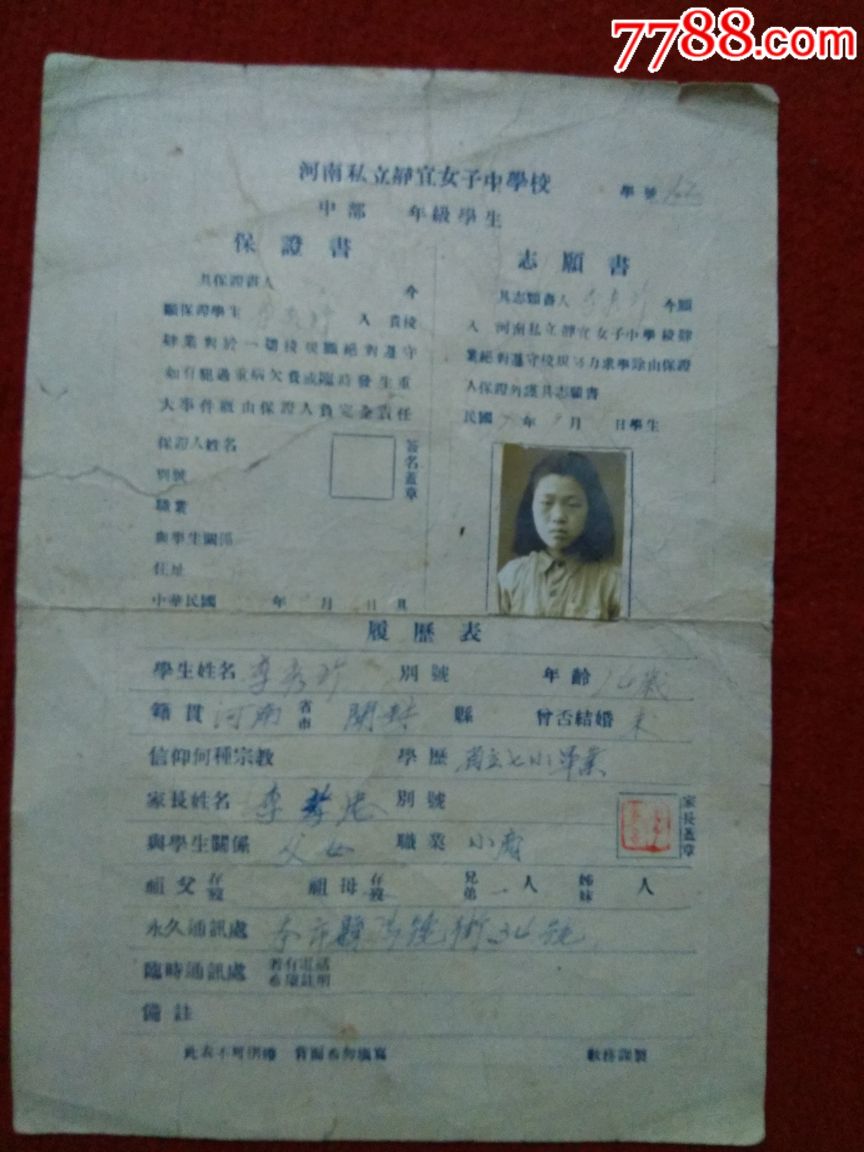 7788.com
河南私立靜宜女子中學校
學號
中部 年級學生
保證書
具保證書人 今
願保證學生 李秀珍 入 貴校
肄業對於一切校規願絕對遵守
如有犯過重病欠費或臨時發生重
大事件概由保證人負完全責任
保證人姓名
別號
職業
與學生關係
住址
中華民國 年 月 日具
簽名蓋章
志願書
具志願書人 李秀珍 今願
入 河南私立靜宜女子中學校肄
業絕對遵守校規努力求學除由保證
人保證外謹具志願書
民國 年 9 月 日學生
履歷表
學生姓名 李秀珍 別號 年齡 歲
籍貫 河南 省市 開封 縣 曾否結婚 未
信仰何種宗教 學歷 七小畢業
家長姓名 李 別號
家長蓋章
與學生關係 父女 職業 小商
祖父 存歿 祖母 存歿 兄弟 一 人 姊妹 人
永久通訊處 本市縣 街34號
臨時通訊處 若有電話亦須註明
備註
此表不可摺捲 背面亦勿填寫 教務課製